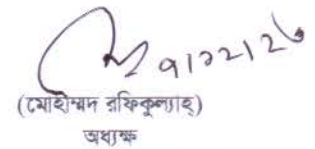 ৭/১২/২৬
(মোহাম্মদ রফিকুল্যাহ)
অধ্যক্ষ